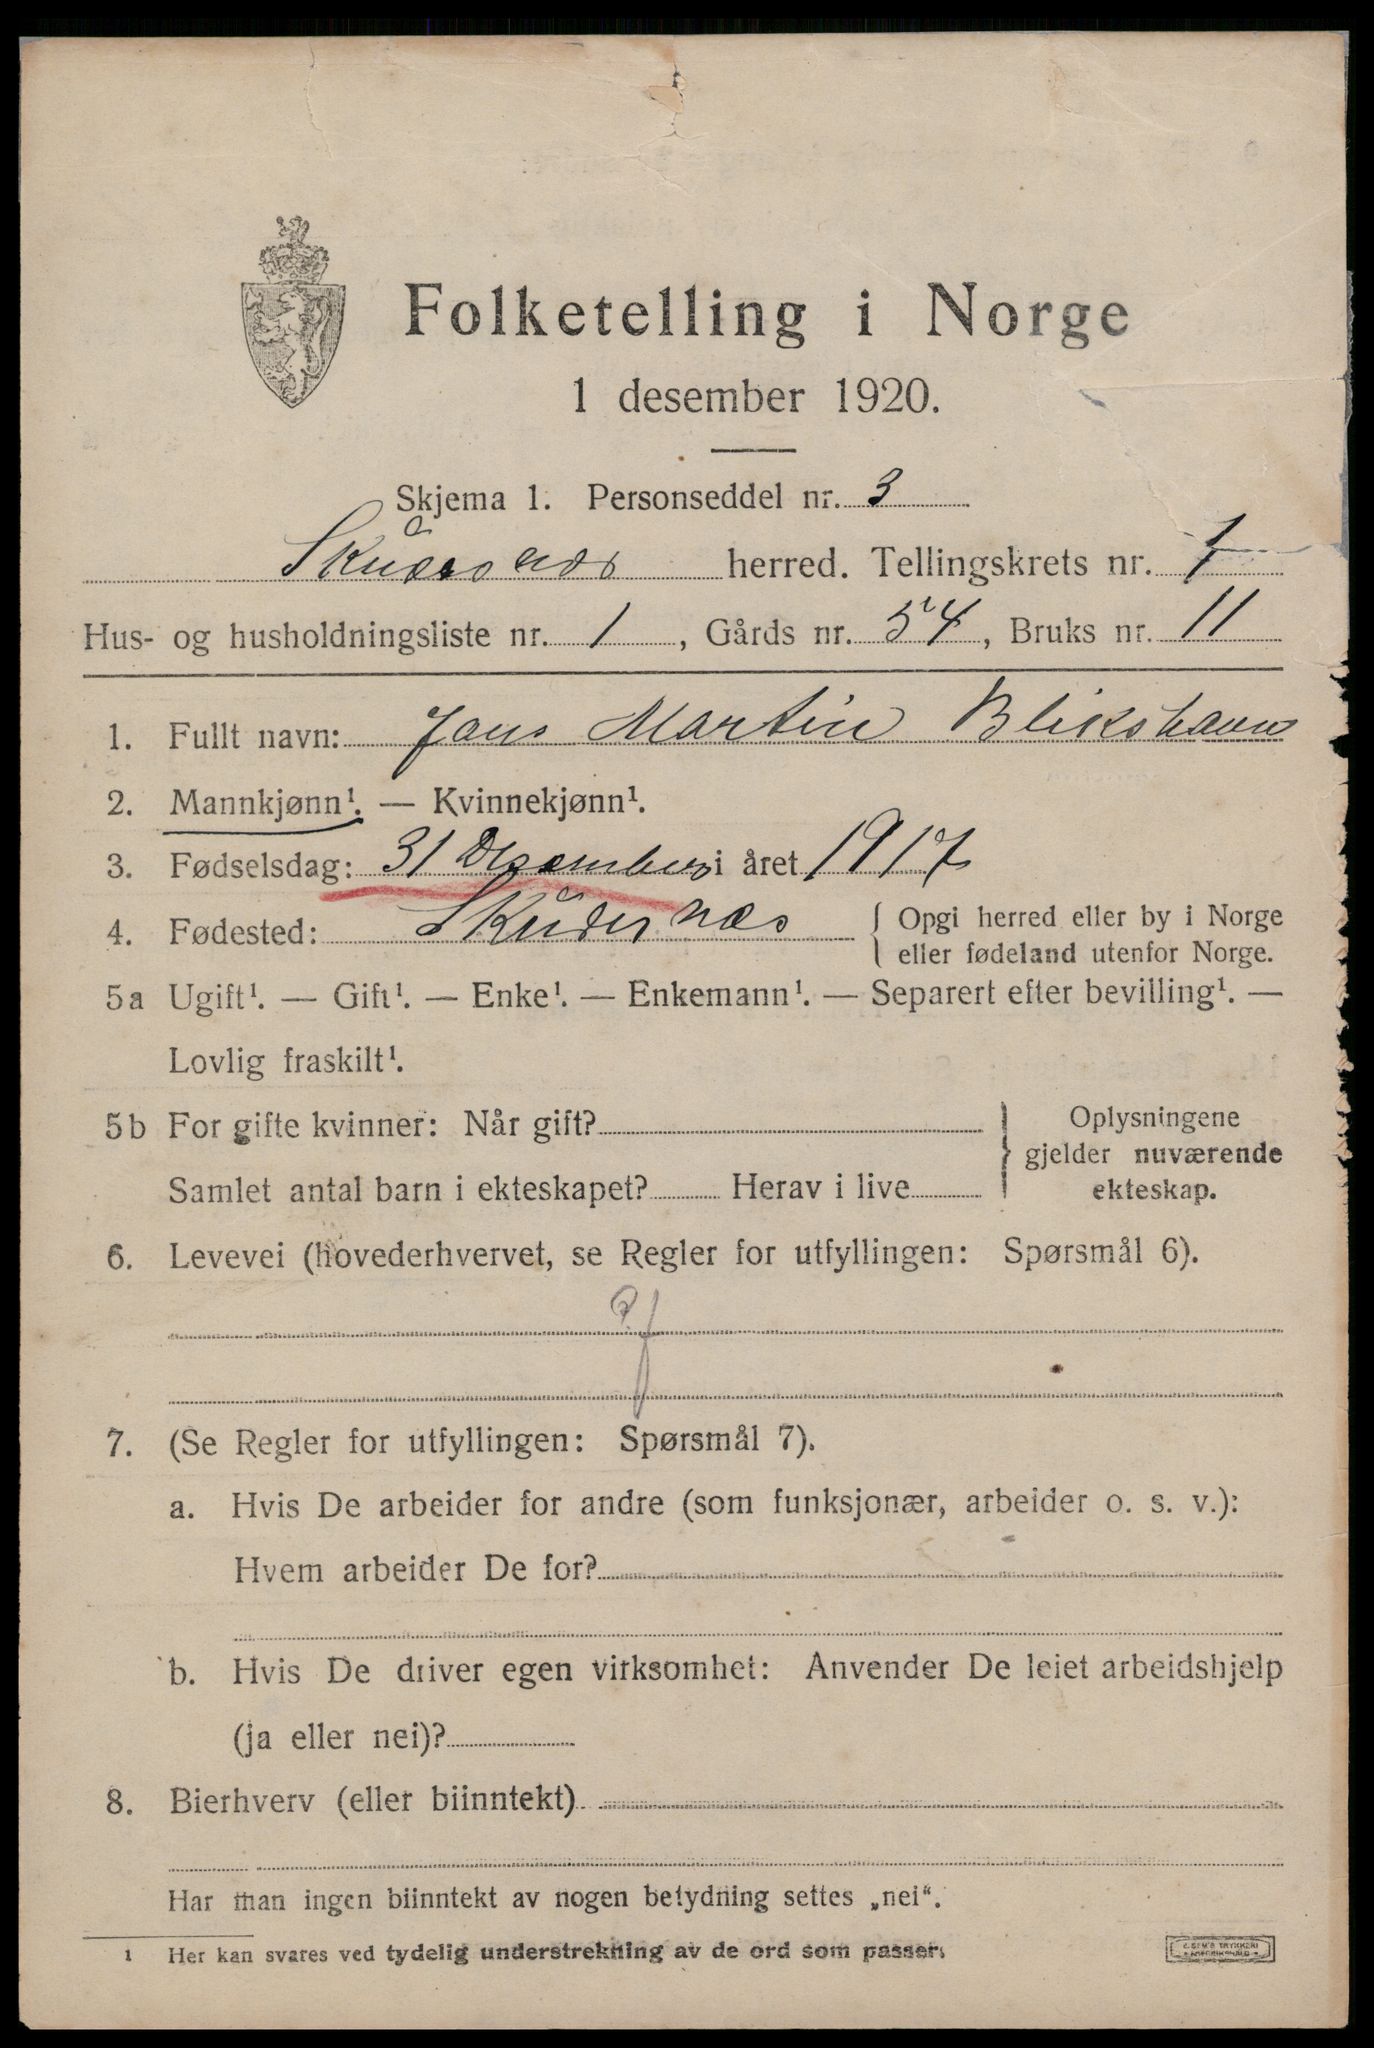 Folketelling i Norge
1 desember 1920.
Skjema 1. Personseddel nr. 3
Skudesnæs herred. Tellingskrets nr. 1
Hus- og husholdningsliste nr. 1, Gårds nr. 54, Bruks nr. 11
1. Fullt navn: Jans Martin Blikshavn
2. Mannkjønn¹. — Kvinnekjønn¹.
3. Fødselsdag: 31 Desember i året 1917
4. Fødested: Skudesnæs { Opgi herred eller by i Norge
eller fødeland utenfor Norge.
5a Ugift¹. — Gift¹. — Enke¹. — Enkemann¹. — Separert efter bevilling¹. —
Lovlig fraskilt¹.
5b For gifte kvinner: Når gift?
Samlet antal barn i ekteskapet? Herav i live
Oplysningene
gjelder nuværende
ekteskap.
6. Levevei (hovederhvervet, se Regler for utfyllingen: Spørsmål 6).
7. (Se Regler for utfyllingen: Spørsmål 7).
a. Hvis De arbeider for andre (som funksjonær, arbeider o. s. v.):
Hvem arbeider De for?
b. Hvis De driver egen virksomhet: Anvender De leiet arbeidshjelp
(ja eller nei)?
8. Bierhverv (eller biinntekt)
Har man ingen biinntekt av nogen betydning settes „nei“.
1 Her kan svares ved tydelig understrekning av de ord som passer.